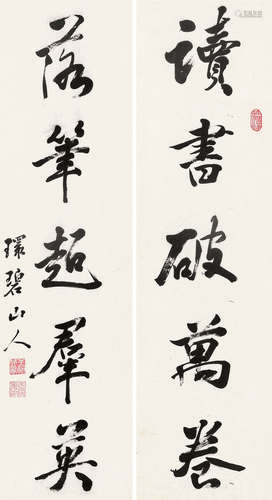 讀書破萬卷
落筆超羣英
環碧山人